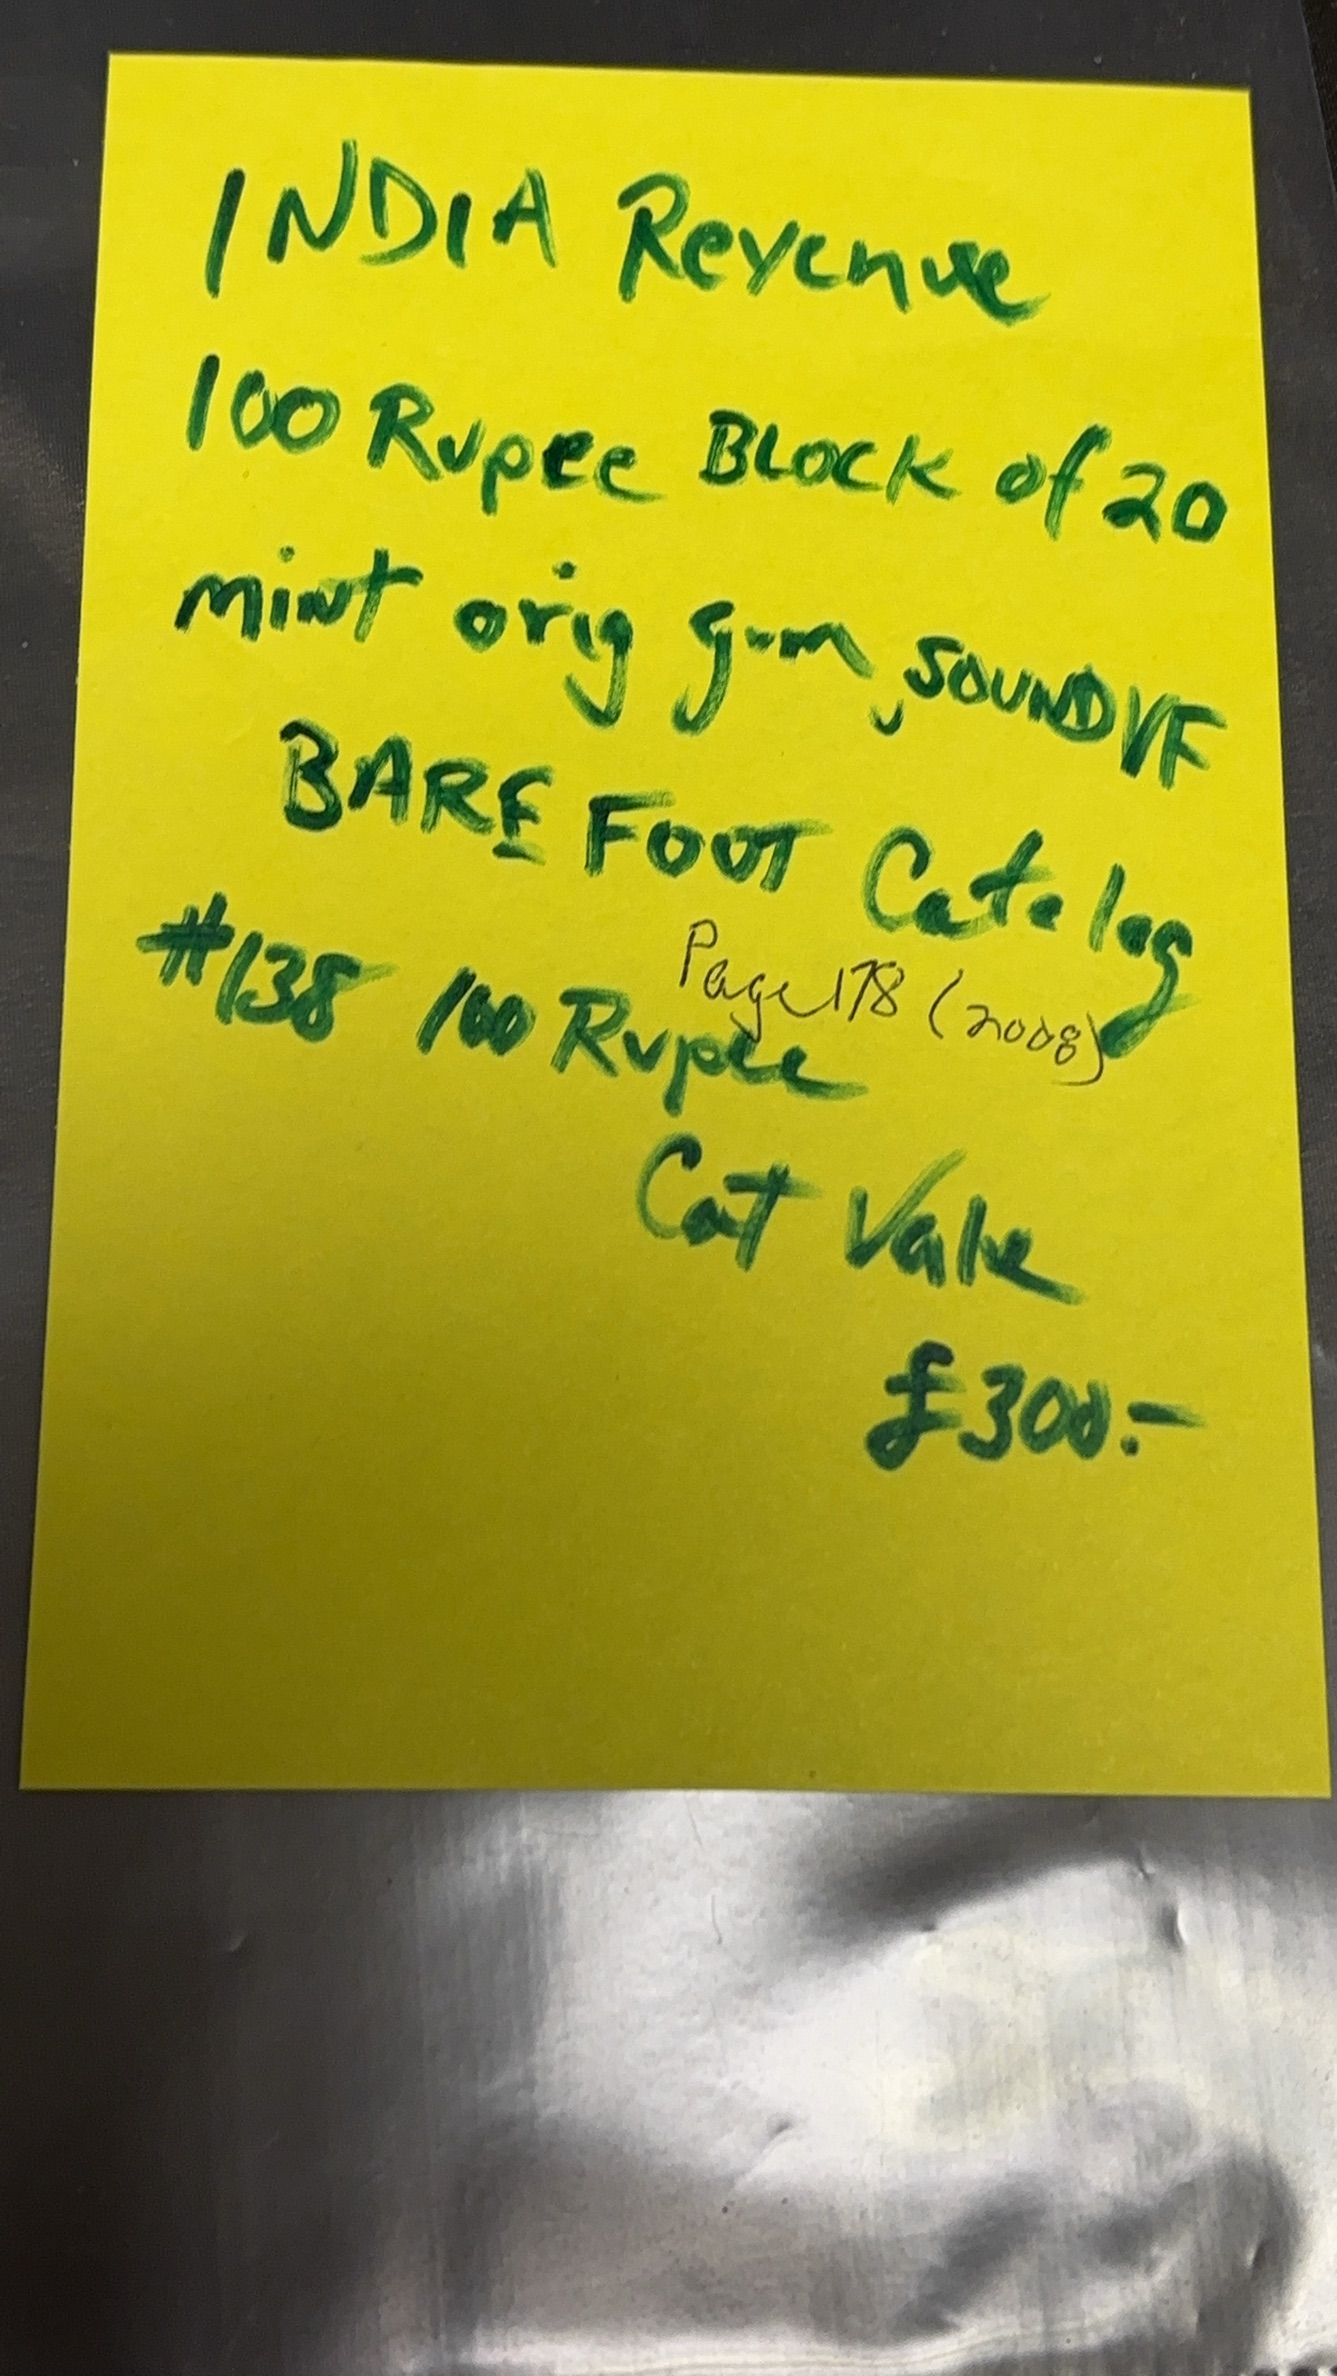 INDIA Revenue
100 Rupee BLOCK of 20
mint orig gum, SOUND VF
BAREFOOT Catalog
Page 178 (2008)
#138 100 Rupee
Cat Value
£300.-